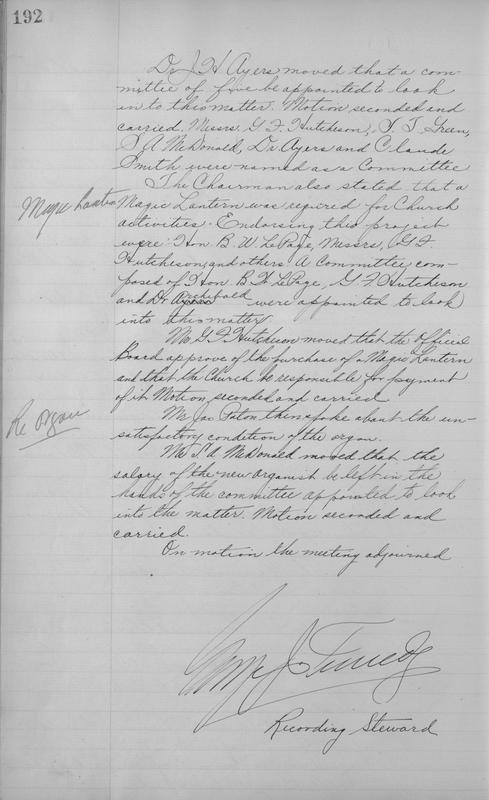 192
Dr J H Ayers moved that a com-
mittee of five be appointed to look
in to this matter. Motion seconded and
carried. Messrs. G F Hutcheson, T. J Green,
S A McDonald, Dr Ayers and Claude
Smith were named as a Committee
The Chairman also stated that a
Magic Lantern
Magic Lantern was required for Church
activities. Endorsing this project
were: Hon B. W LePage, Messrs, G F
Hutcheson, and others. A Committee com-
posed of Hon B W LePage, G F Hutcheson
and Dr Archibald were appointed to look
into this matter.
Mr G F Hutcheson moved that the Official
Board approve of the purchase of a Magic Lantern
and that the Church be responsible for payment
of it. Motion seconded and carried
Re organ
Mr Jas Paton then spoke about the un-
satisfactory condition of the organ.
Mr S. A McDonald moved that the
salary of the new organist be left in the
hands of the committee appointed to look
into the matter. Motion seconded and
carried.
On motion the meeting adjourned
Recording Steward